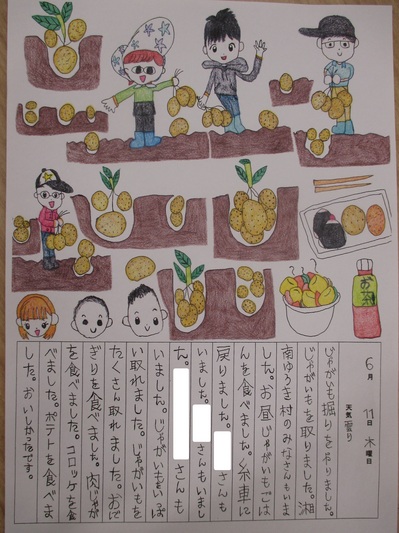 お茶
6月 11日 木曜日
天気 曇り
じゃがいも掘りをやりました。
じゃがいもを取りました。湘
南ゆうき村のみなさんもいま
した。お昼じゃがいもごは
んを食べました。糸車に
戻りました。さんも
いました。さんもいまし
た。さんも
いました。じゃがいもをいっぱ
い取れました。じゃがいもを
たくさん取れました。おに
ぎりを食べました。肉じゃが
を食べました。コロッケを食
べました。ポテトを食べま
した。おいしかったです。